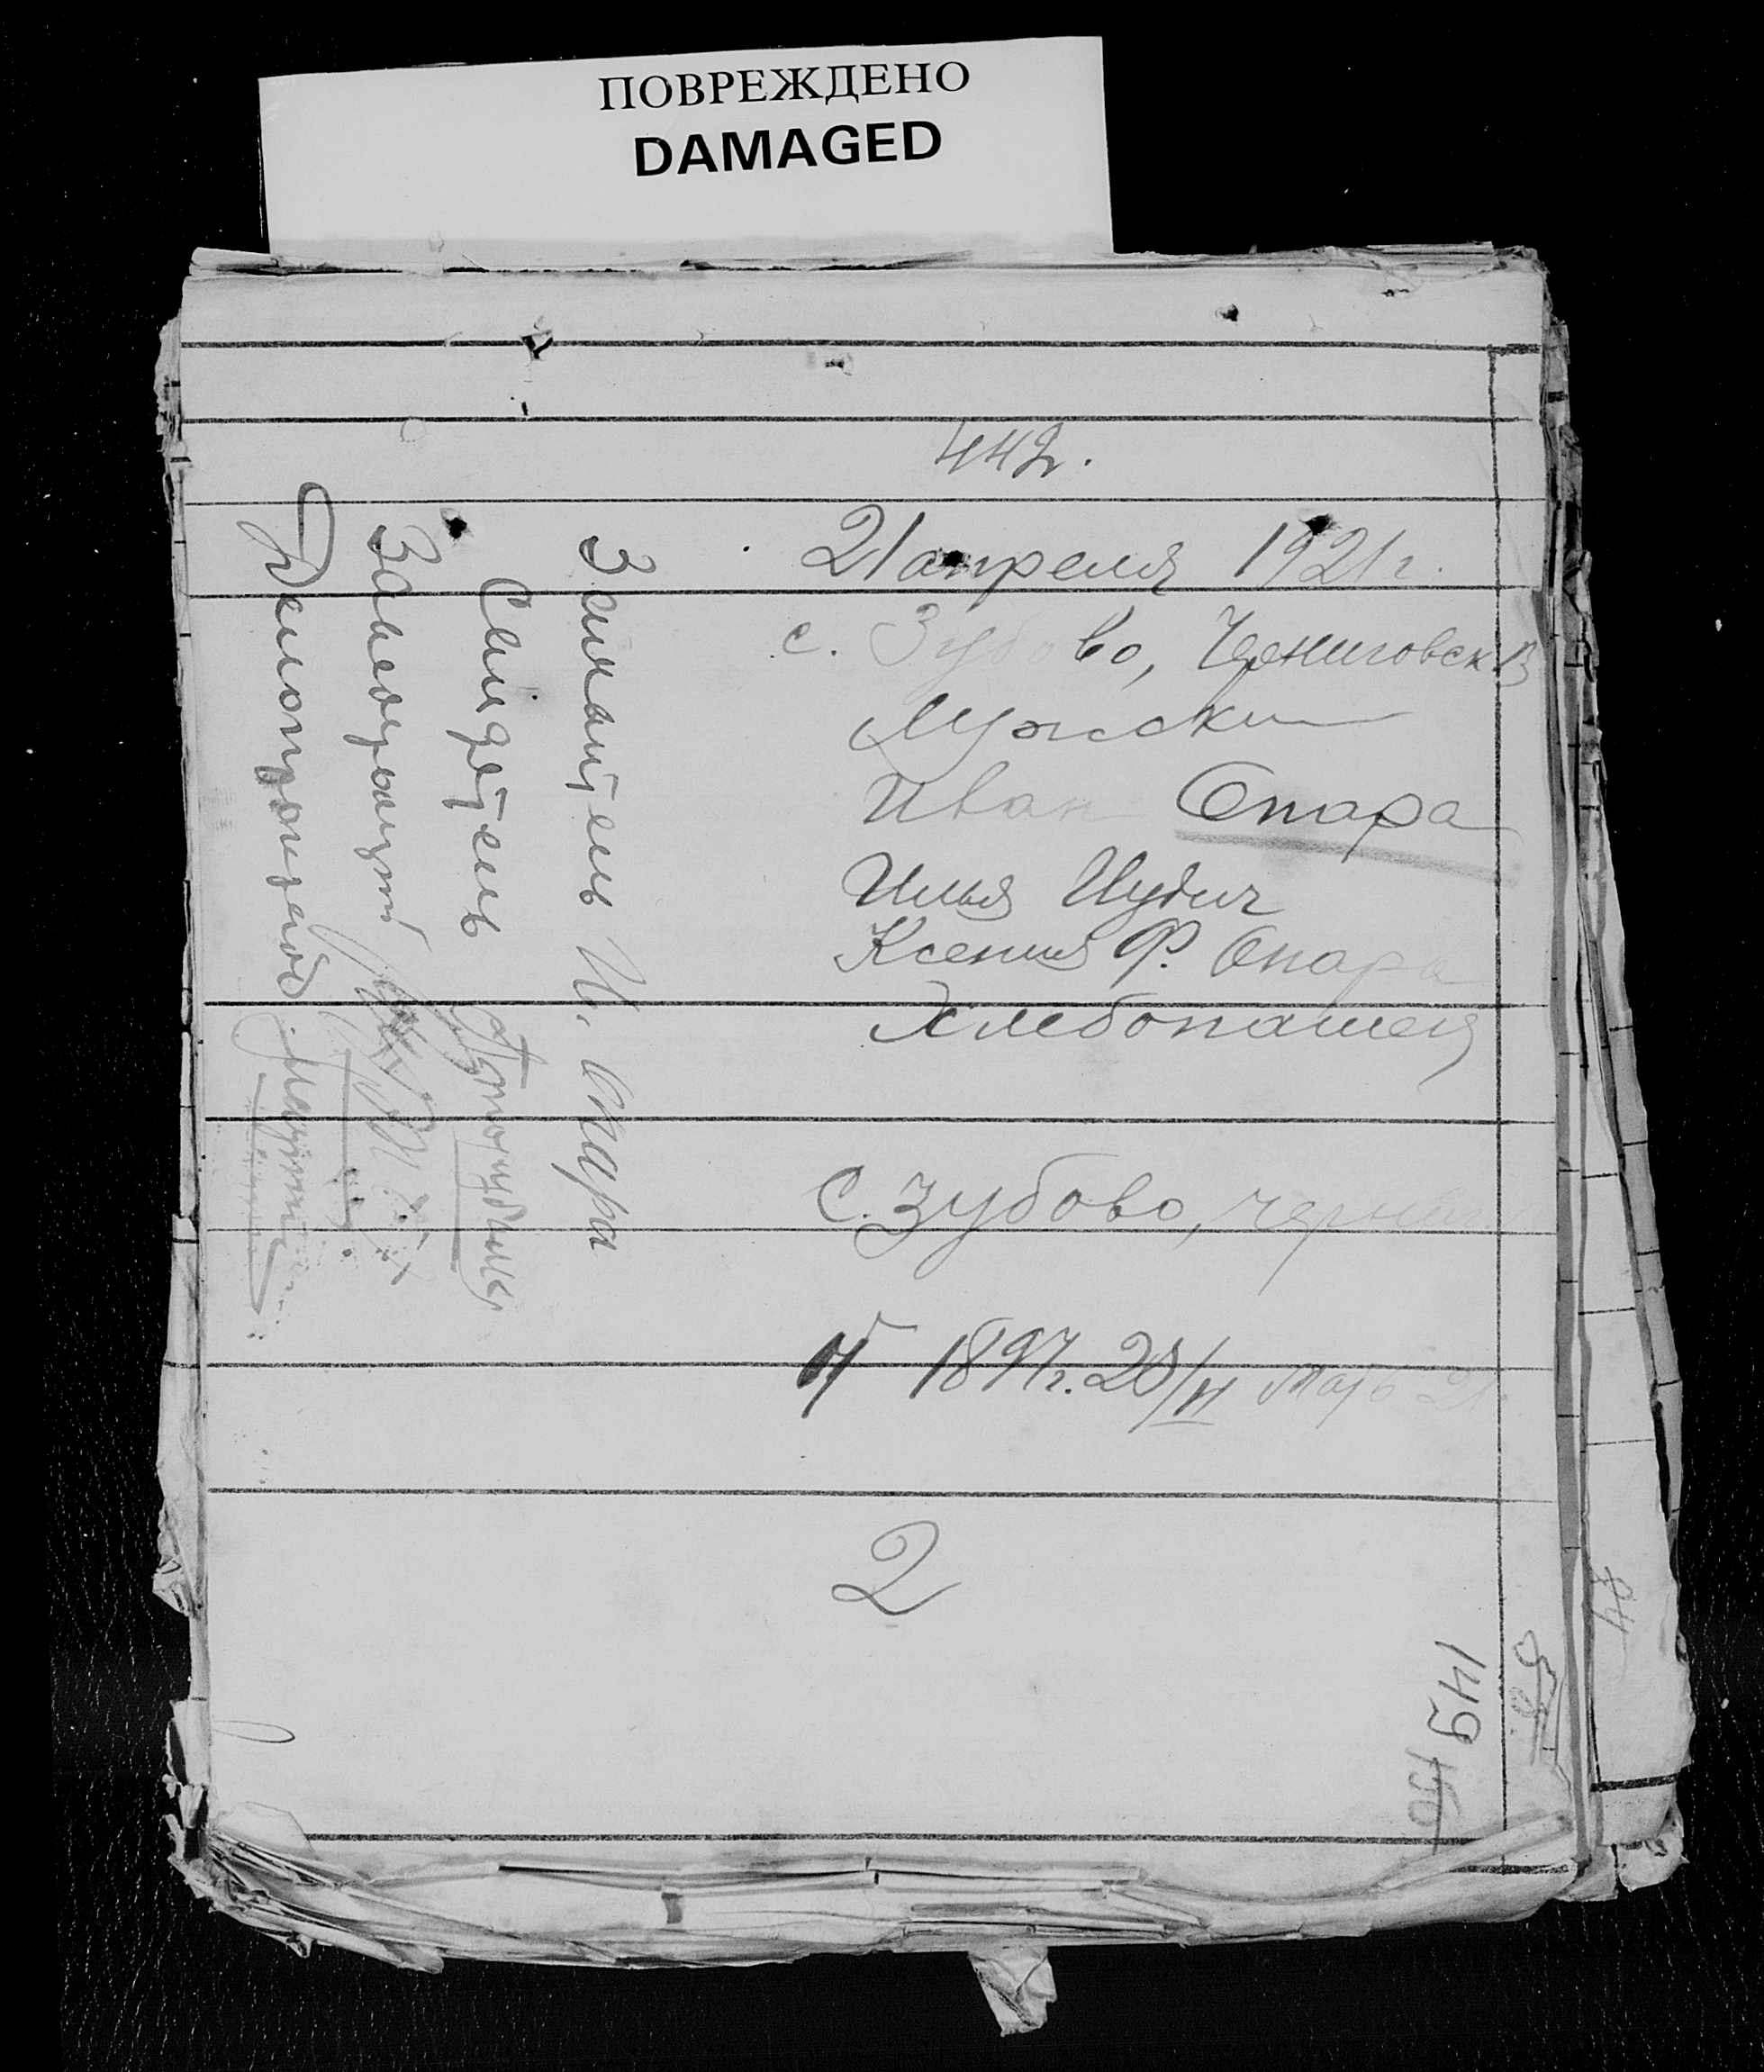 ПОВРЕЖДЕНО
DAMAGED
442.
21 апреля 1921 г.
с. Зубово, Черниговск. В
Мужски
Иван Опара
Илья Иудич
Ксения Ф. Опара
Хлебопашец
С. Зубово, Черниг
1897 г. 20/VI
2
149
Заявитель И. Опара
Свидетель
Заведующий
Делопроизвод.